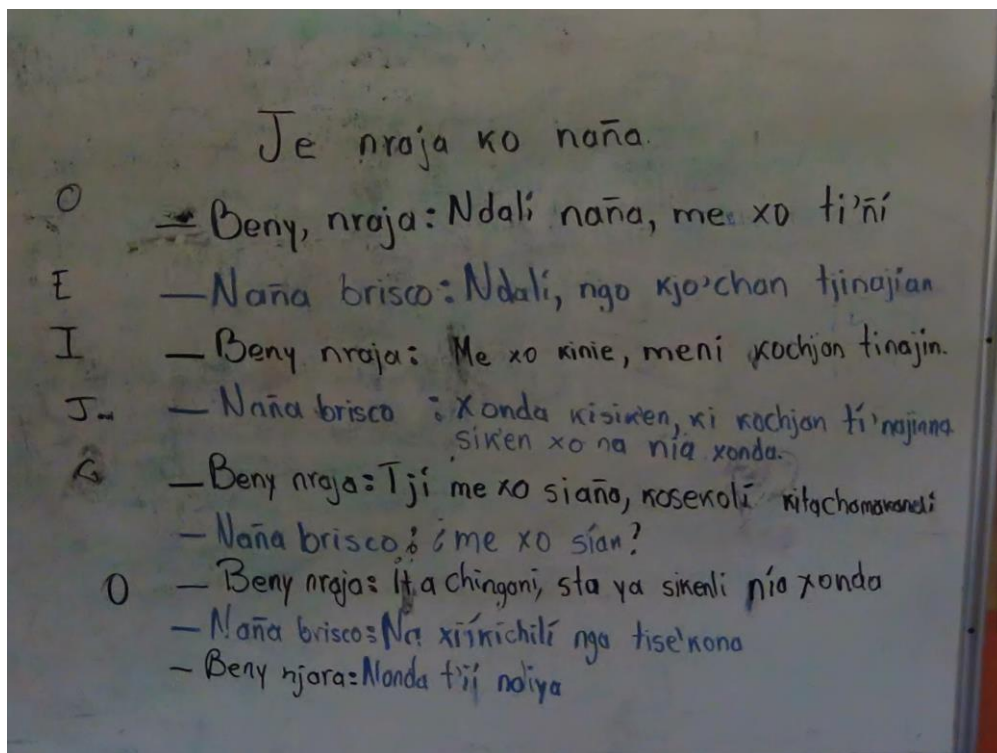 Je nraja ko naña.
O — Beny, nraja: Ndalí naña, me xo ti'ñí
E — Naña brisco: Ndalí, ngo kjo'chan tjinajían
I — Beny nraja: Me xo kinie, mení kochjan tinajin.
J — Naña brisco : Xonda kisik'en, ki kochjan tí'najinna
sik'en xo na nía xonda.
G — Beny nraja: Tjí me xo siaño, kosekolí
— Naña brisco: ¿me xo sían?
O — Beny nraja: Ít a chingoni, sta ya sikenli nía xonda
— Naña brisco: Na xiíkichilí ngo tise'kona
— Beny njara: Nonda t'ií ndiya